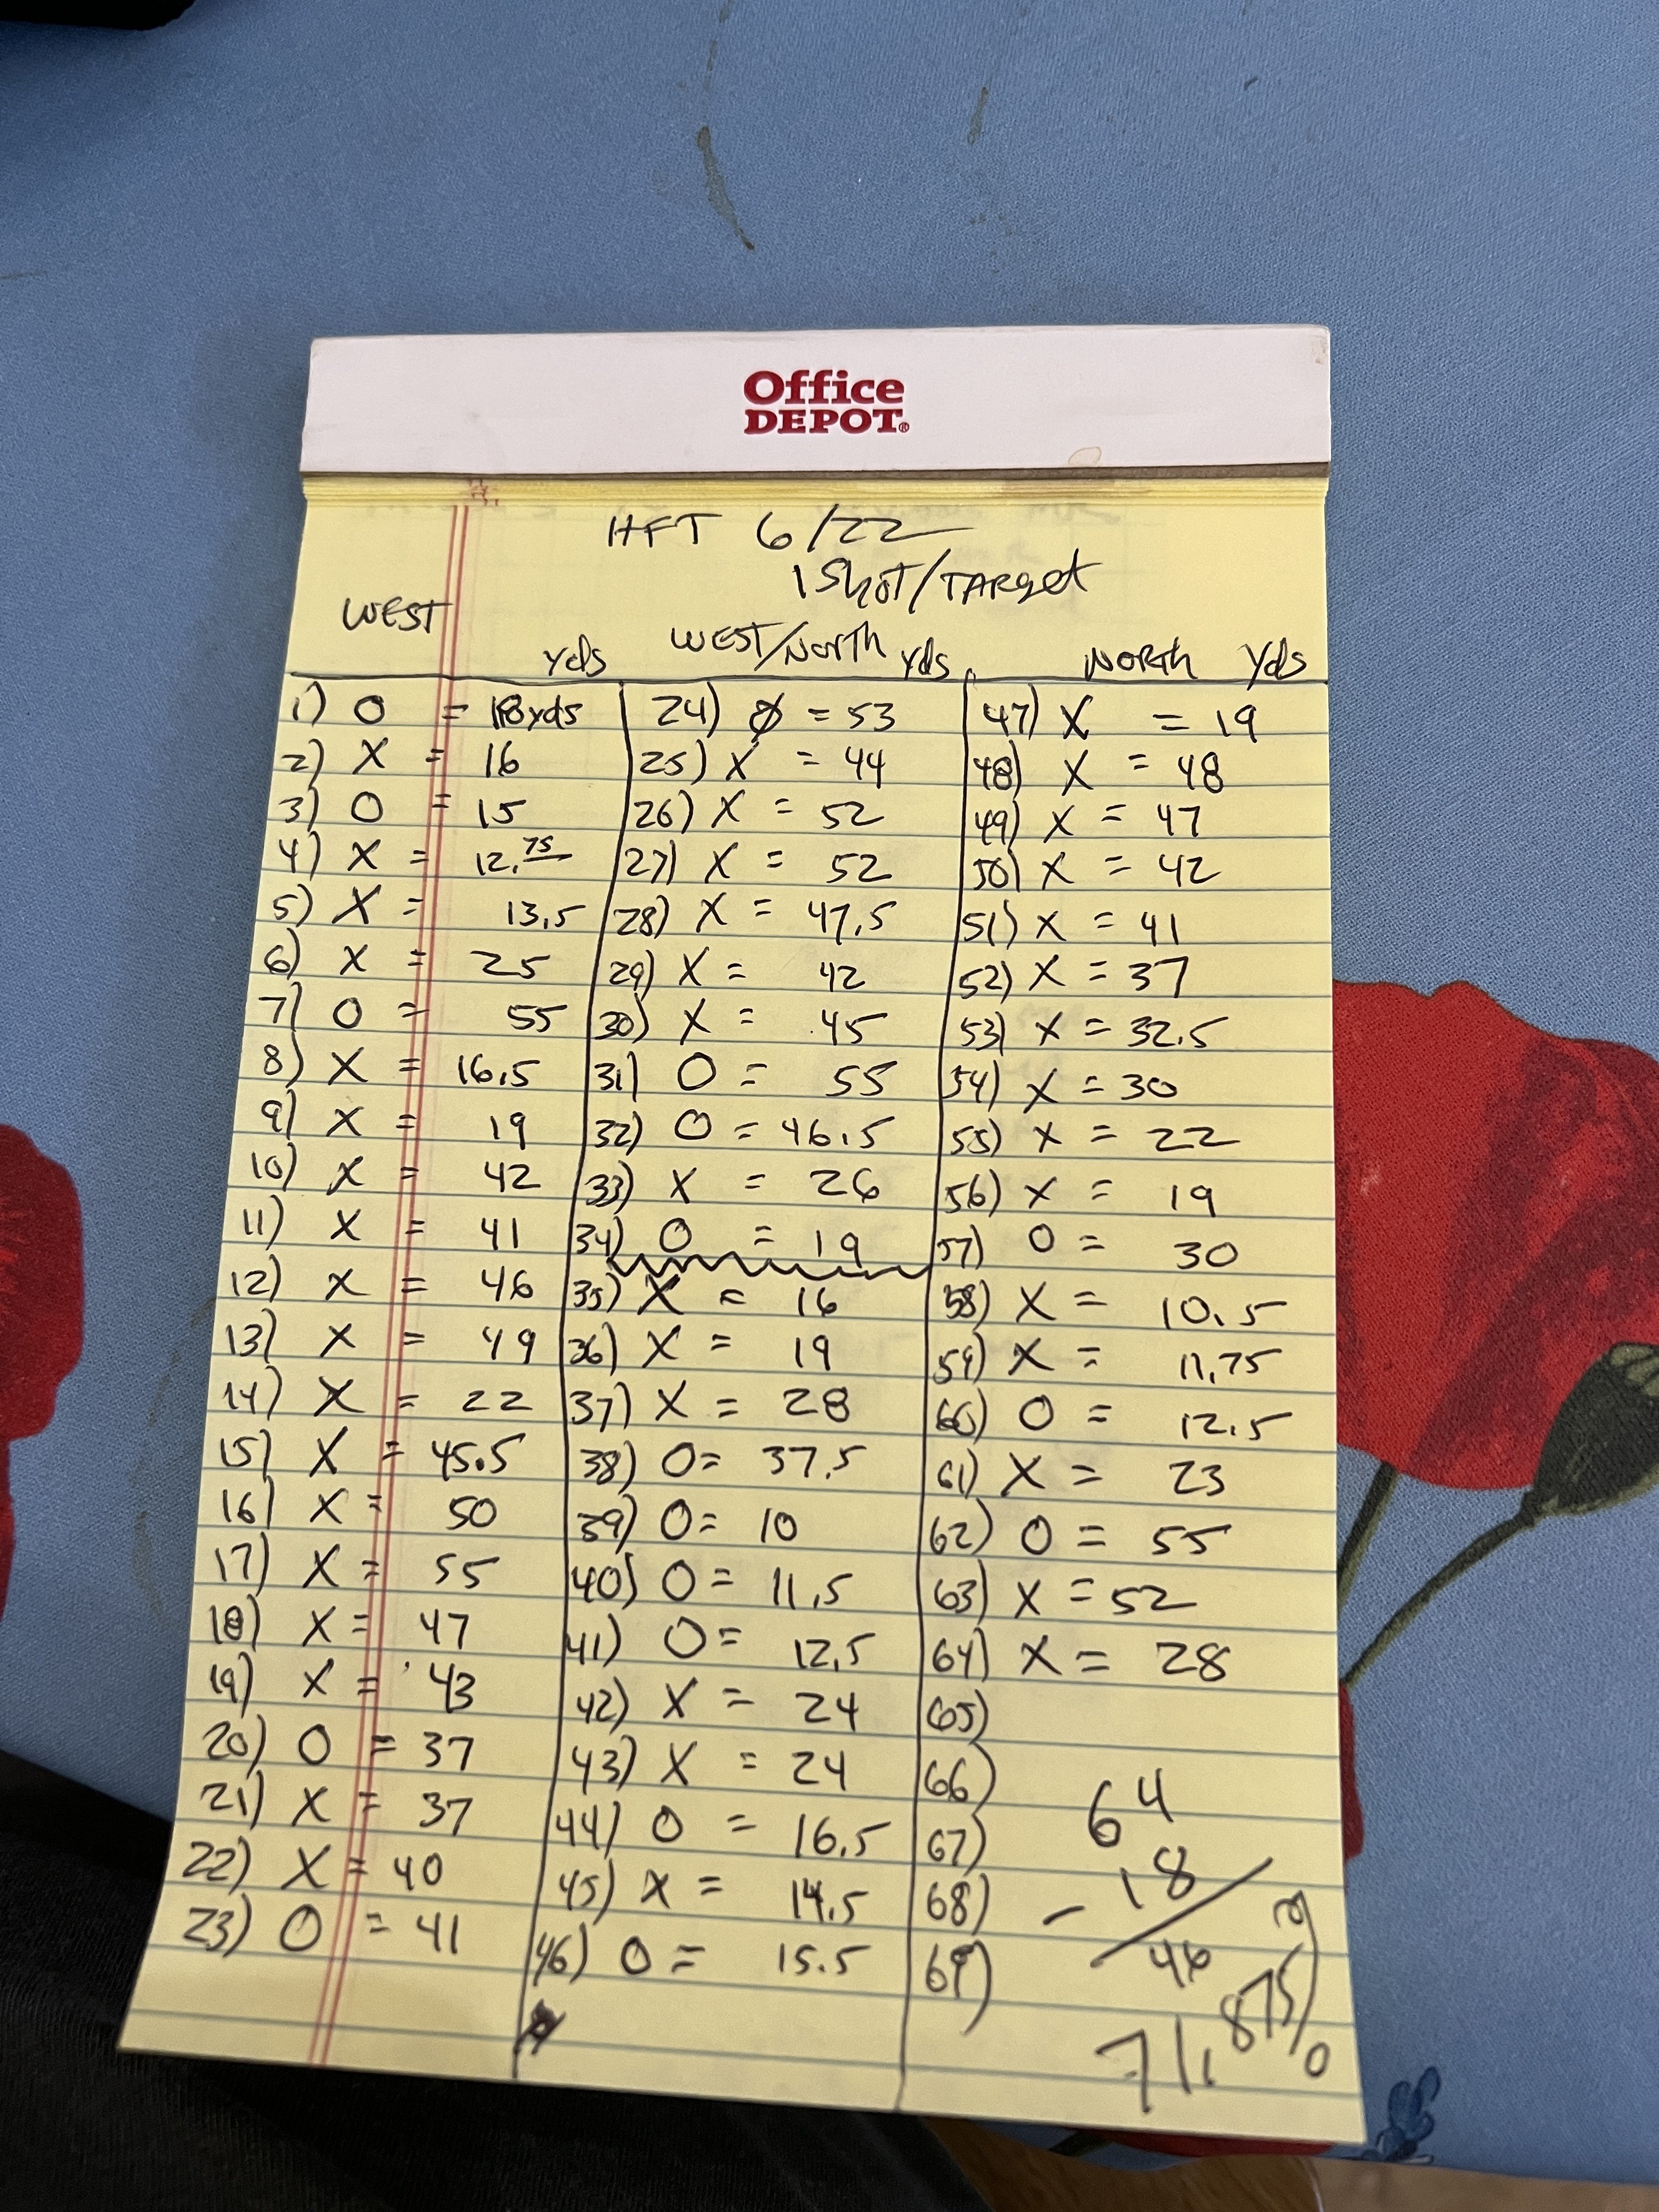 Office
DEPOT®
HFT 6/22
1 Shot/TARget
WEST
yds
WEST/North yds
NORTh yds
1) O = 18yds
2) X = 16
3) O = 15
4) X = 12.75
5) X = 13.5
6) X = 25
7) O = 55
8) X = 16.5
9) X = 19
10) X = 42
11) X = 41
12) X = 46
13) X = 49
14) X = 22
15) X = 45.5
16) X = 50
17) X = 55
18) X = 47
19) X = 43
20) O = 37
21) X = 37
22) X = 40
23) O = 41
24) Ø = 53
25) X = 44
26) X = 52
27) X = 52
28) X = 47.5
29) X = 42
30) X = 45
31) O = 55
32) O = 46.5
33) X = 26
34) O = 19
35) X = 16
36) X = 19
37) X = 28
38) O = 37.5
39) O = 10
40) O = 11.5
41) O = 12.5
42) X = 24
43) X = 24
44) O = 16.5
45) X = 14.5
46) O = 15.5
47) X = 19
48) X = 48
49) X = 47
50) X = 42
51) X = 41
52) X = 37
53) X = 32.5
54) X = 30
55) X = 22
56) X = 19
57) O = 30
58) X = 10.5
59) X = 11.75
60) O = 12.5
61) X = 23
62) O = 55
63) X = 52
64) X = 28
65)
66)
67)
68)
69)
64
- 18
46
71.875%